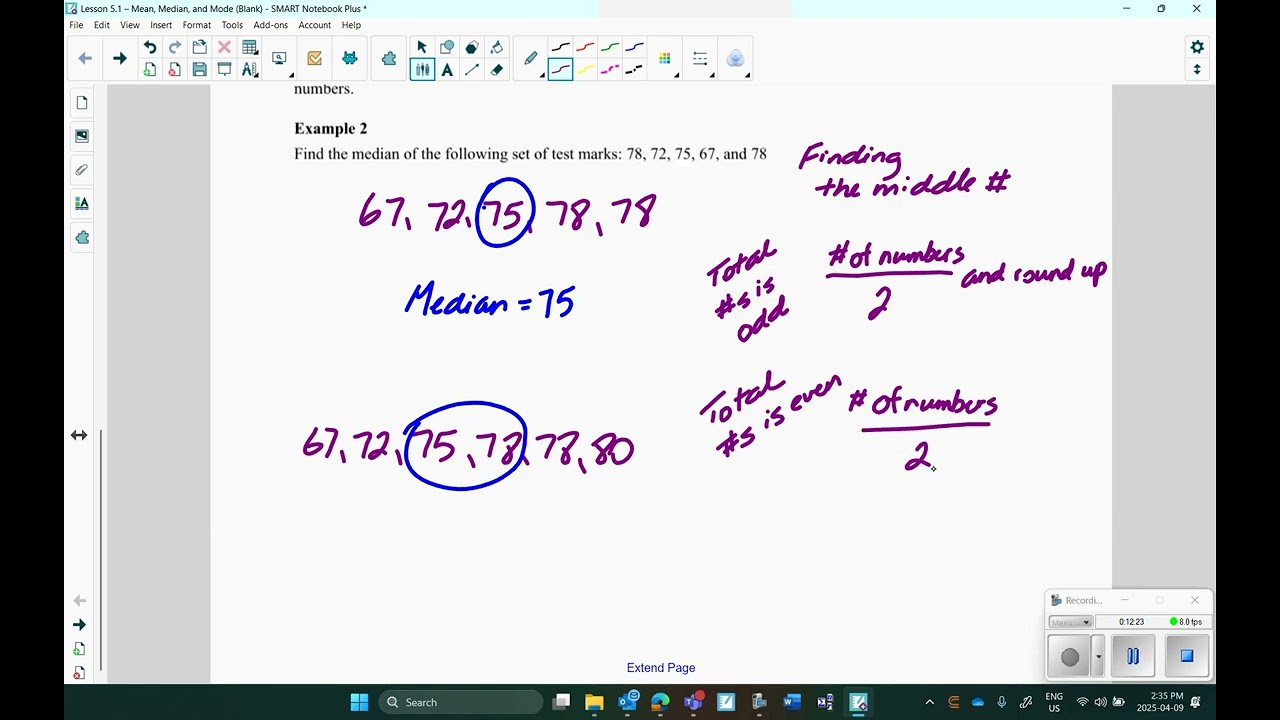 Lesson 5.1 – Mean, Median, and Mode (Blank) - SMART Notebook Plus *
File Edit View Insert Format Tools Add-ons Account Help
numbers.
Example 2
Find the median of the following set of test marks: 78, 72, 75, 67, and 78
Finding
the middle #
67, 72, 75, 78, 78
Total
#s is
odd
# of numbers
2
and round up
Median = 75
Total
#s is even
# of numbers
2
67, 72, 75, 78, 78, 80
Extend Page
Recordi...
Menu
0:12:23
8.0 fps
Search
ENG
US
2:35 PM
2025-04-09